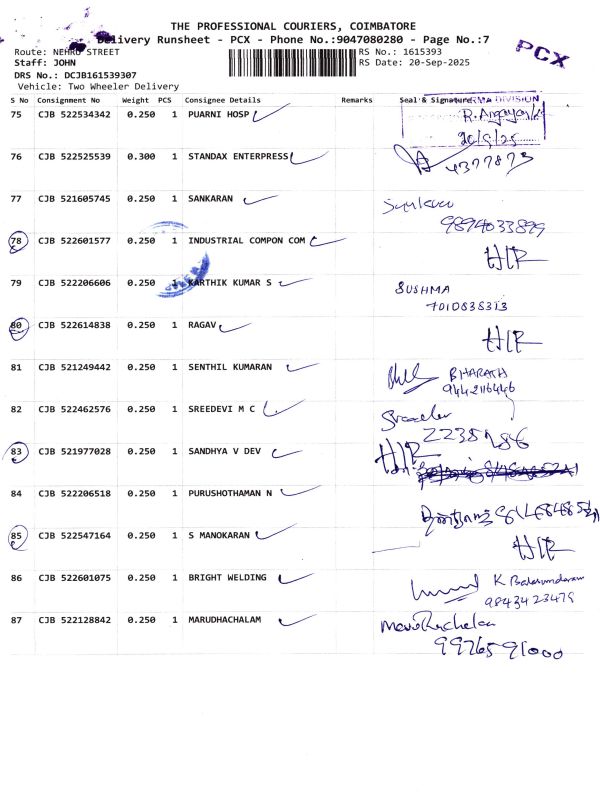 THE PROFESSIONAL COURIERS, COIMBATORE
Delivery Runsheet - PCX - Phone No.:9047080280 - Page No.:7
PCX
Route: NEHRU STREET
RS No.: 1615393
Staff: JOHN
RS Date: 20-Sep-2025
DRS No.: DCJB161539307
Vehicle: Two Wheeler Delivery
S No Consignment No Weight PCS Consignee Details Remarks Seal & Signature
DIVISION
75 CJB 522534342 0.250 1 PUARNI HOSP
20/9/25
76 CJB 522525539 0.300 1 STANDAX ENTERPRESS
4377873
77 CJB 521605745 0.250 1 SANKARAN
9894033899
78 CJB 522601577 0.250 1 INDUSTRIAL COMPON COM
H/R
79 CJB 522206606 0.250 1 KARTHIK KUMAR S
SUSHMA
7010838313
80 CJB 522614838 0.250 1 RAGAV
H/R
81 CJB 521249442 0.250 1 SENTHIL KUMARAN
BHARATH
9442116446
82 CJB 522462576 0.250 1 SREEDEVI M C
2238786
83 CJB 521977028 0.250 1 SANDHYA V DEV
H/R
84 CJB 522206518 0.250 1 PURUSHOTHAMAN N
85 CJB 522547164 0.250 1 S MANOKARAN
H/R
86 CJB 522601075 0.250 1 BRIGHT WELDING
K Balasundaram
9843423479
87 CJB 522128842 0.250 1 MARUDHACHALAM
9976591000